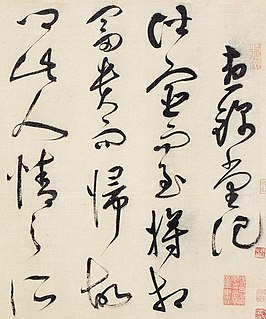 晝錦堂記
仕宦而至將相
富貴而歸故
鄉此人情之所